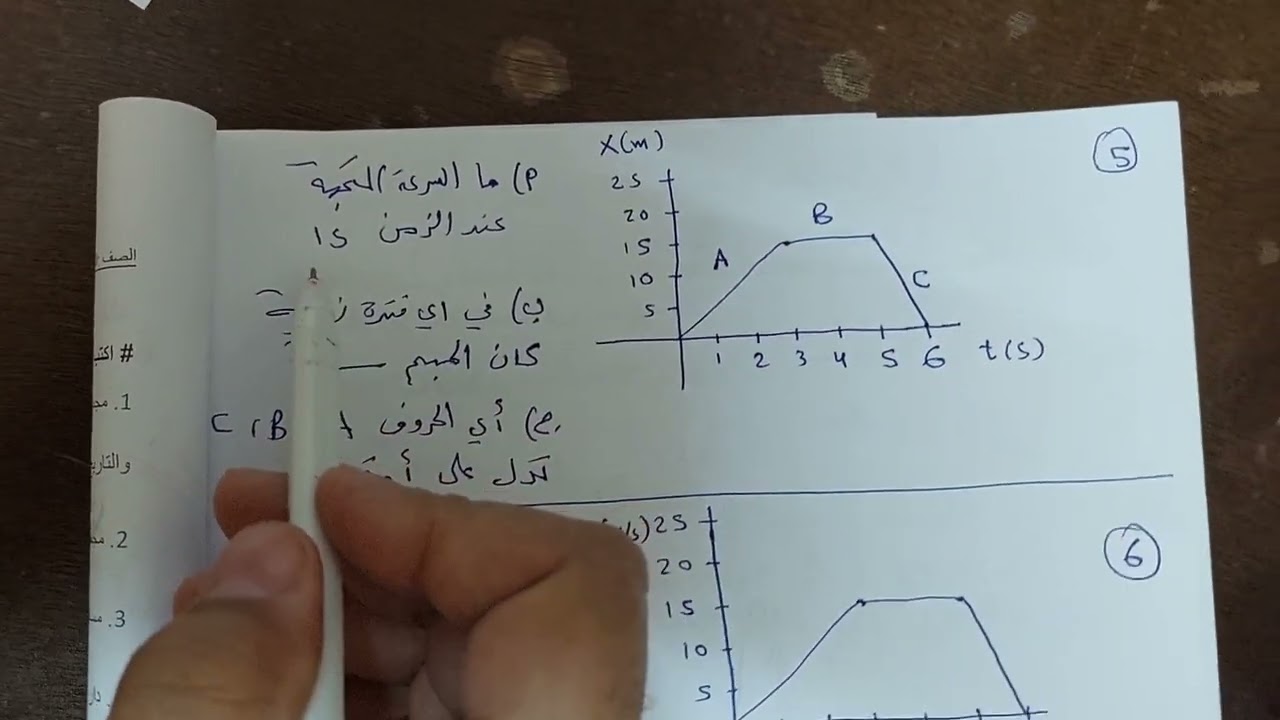 5
X(m)
25
20
15
10
5
A
B
C
1 2 3 4 5 6 t(s)
أ) ما السرعة المتجهة
عند الزمن 1s
ب) في اي فترة
كان الجسم
ج) أي الحروف A B, C
تدل على
6
25
20
15
10
5
الصف
# اكتب
1.
والتاري
2.
3.